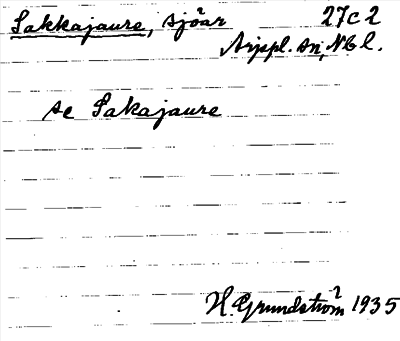 Sakkajaure, sjöar 27c2
Arjepl. sn, Nbl.
se Sakajaure
H. Grundström 1935